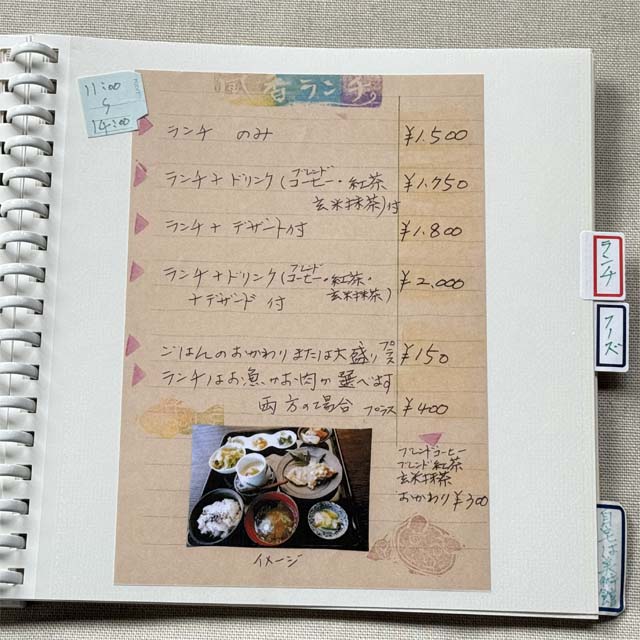 11:00
〜
14:00
風香ランチ
ランチ のみ ¥1.500
ランチ+ドリンク(ブレンドコーヒー・紅茶 ¥1.750
玄米抹茶)付
ランチ+デザート付 ¥1.800
ランチ+ドリンク(ブレンドコーヒー・紅茶・ ¥2.000
+デザート付 玄米抹茶)
ごはんのおかわりまたは大盛りプラス ¥150
ランチはお魚かお肉か選べます
両方の場合 プラス ¥400
ブレンドコーヒー
ブレンド紅茶
玄米抹茶
おかわり¥300
イメージ
ランチ
フーズ